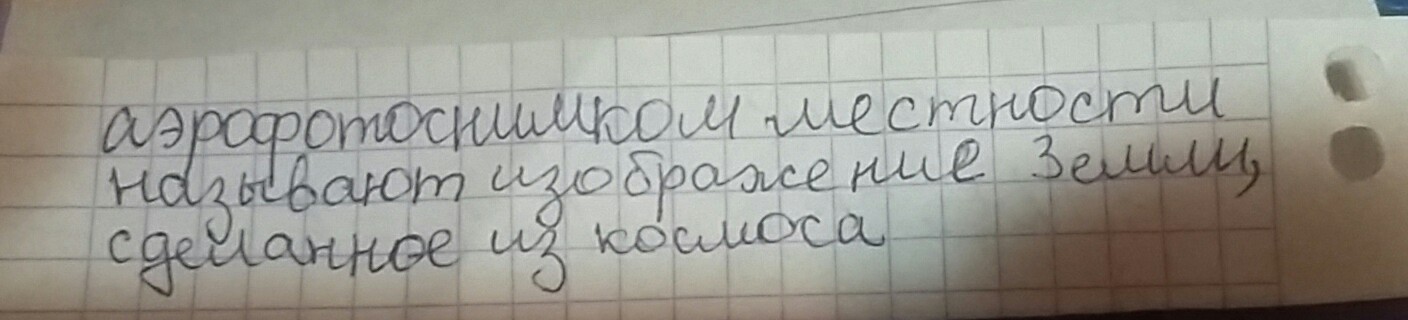 аэрофотоснимком местности
называют изображение Земли,
сделанное из космоса